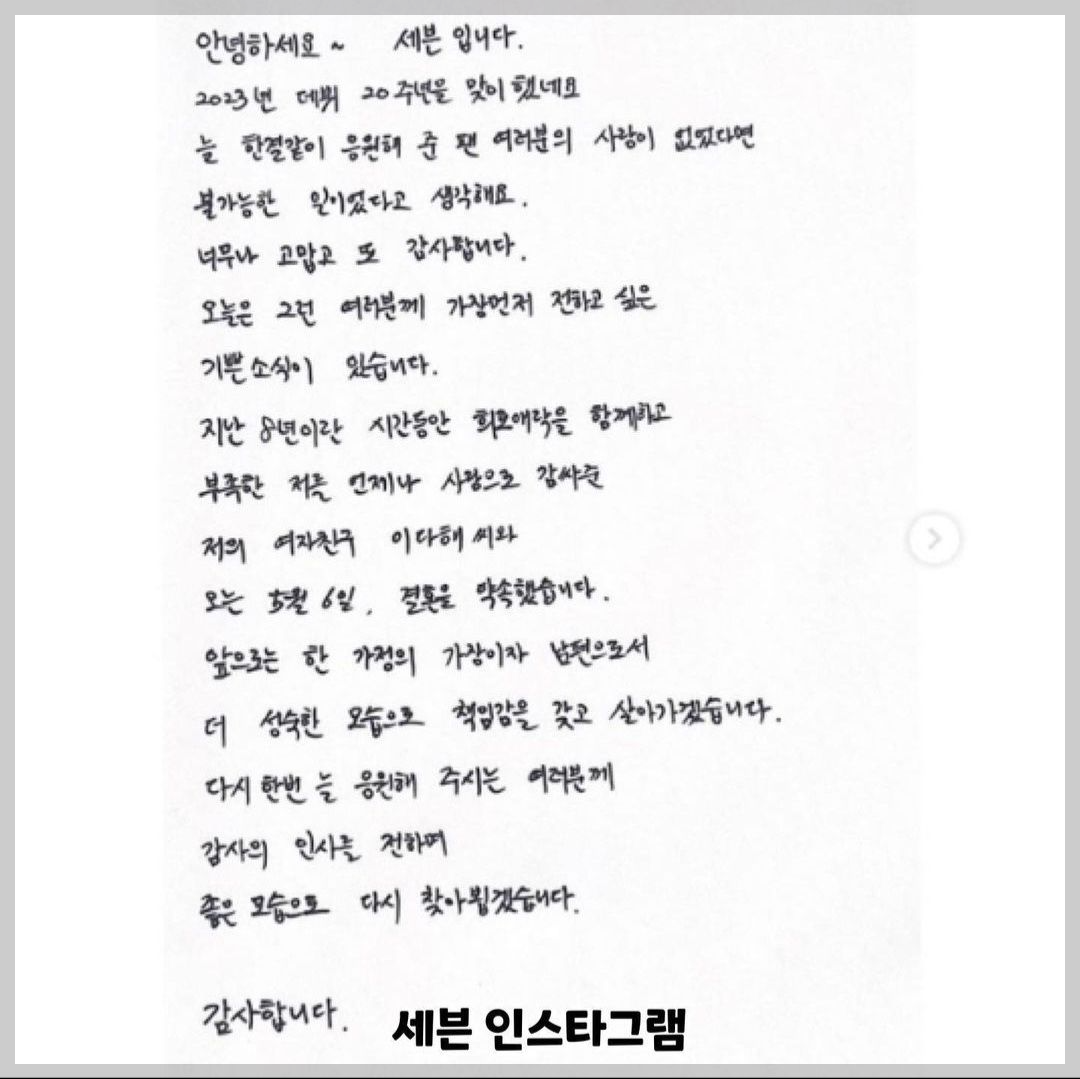 안녕하세요~ 세븐입니다.
2023년 데뷔 20주년을 맞이했네요
늘 한결같이 응원해 준 팬 여러분의 사랑이 없었다면
불가능한 일이었다고 생각해요.
너무나 고맙고 또 감사합니다.
오늘은 그런 여러분께 가장먼저 전하고 싶은
기쁜소식이 있습니다.
지난 8년이란 시간동안 희로애락을 함께하고
부족한 저를 언제나 사랑으로 감싸준
저의 여자친구 이다해씨와
오는 5월 6일, 결혼을 약속했습니다.
앞으로는 한 가정의 가장이자 남편으로서
더 성숙한 모습으로 책임감을 갖고 살아가겠습니다.
다시한번 늘 응원해 주시는 여러분께
감사의 인사를 전하며
좋은 모습으로 다시 찾아뵙겠습니다.
감사합니다.
세븐 인스타그램